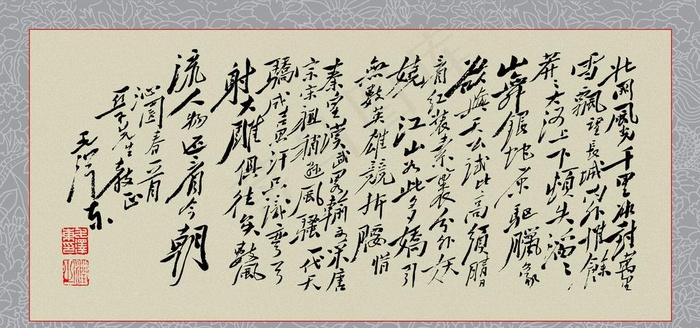 北國風光千里冰封萬里
雪飄望長城內外惟餘
莽莽大河上下頓失滔滔
山舞銀蛇原驅臘象
欲與天公試比高須晴
日看紅裝素裹分外妖
嬈江山如此多嬌引
無數英雄競折腰惜
秦皇漢武略輸文采唐
宗宋祖稍遜風騷一代天
驕成吉思汗只識彎弓
射大雕俱往矣數風
流人物还看今朝
沁園春一首
亞子先生教正
毛澤東